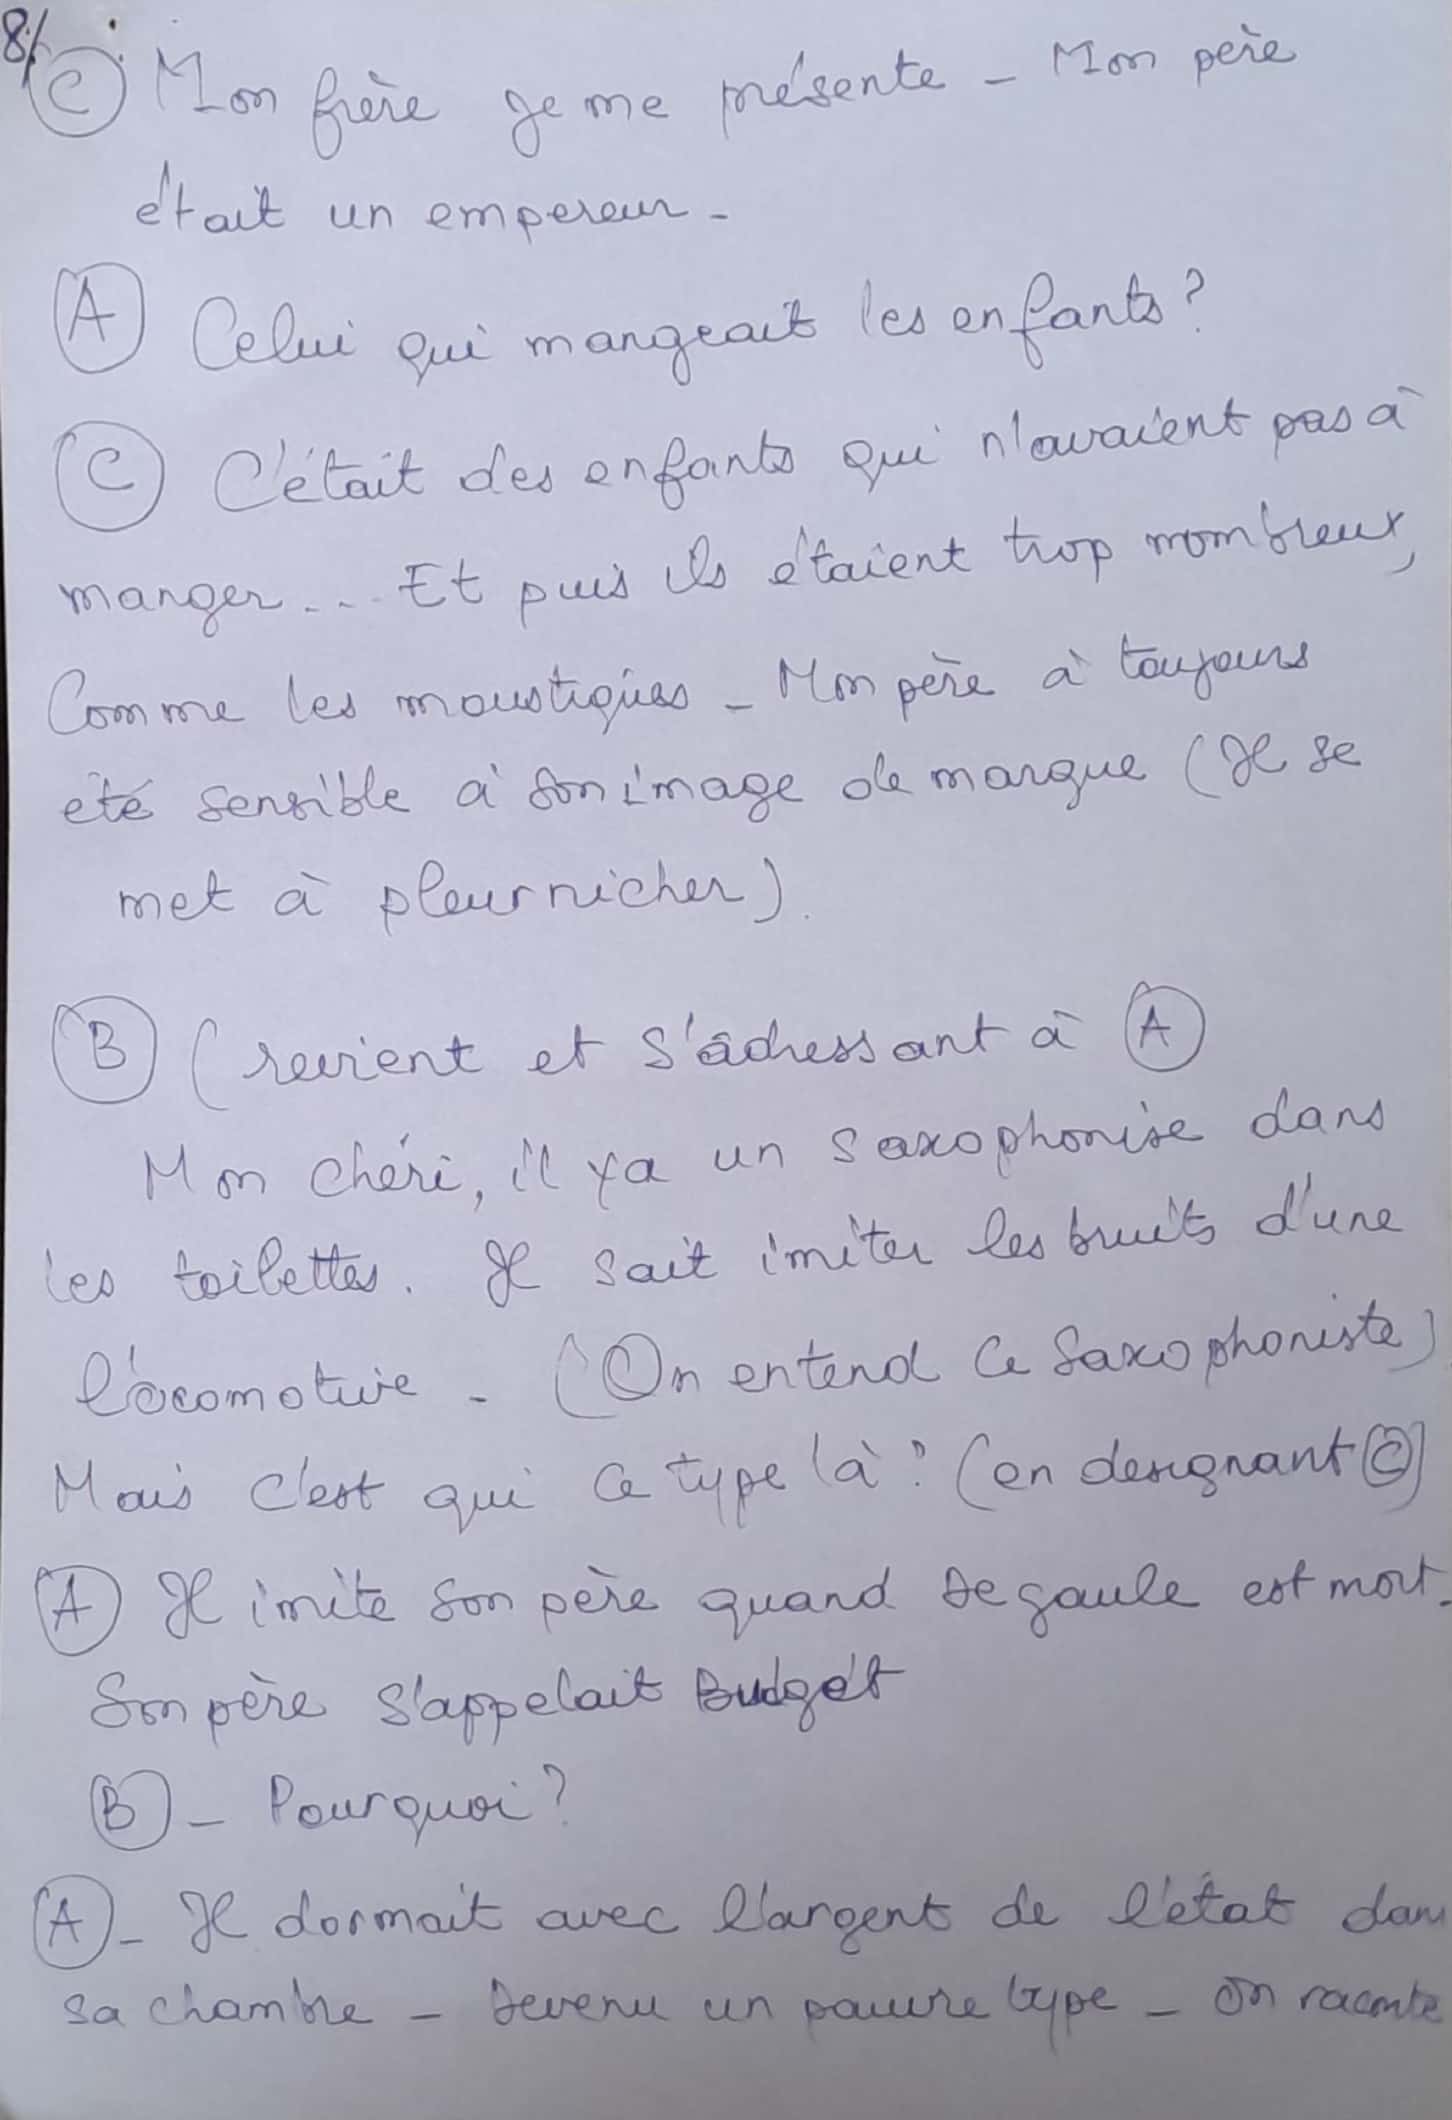 8/
(C) Mon frère je me présente - Mon père
était un empereur -
(A) Celui qui mangeait les enfants ?
(C) C'était des enfants qui n'avaient pas à
manger... Et puis ils étaient trop nombreux,
Comme les moustiques - Mon père à toujours
été sensible à son image de marque (Il se
met à pleurnicher).
(B) (revient et s'adressant à (A)
Mon chéri, il ya un saxophonise dans
les toilettes. Il sait imiter les bruits d'une
locomotive - (On entend ce saxophoniste)
Mais c'est qui ce type là ? (en designant (C))
(A) Il imite son père quand Degaule est mort -
Son père s'appelait Budget
(B) - Pourquoi ?
(A) - Il dormait avec l'argent de l'état dans
sa chambre - Devenu un pauvre type - On raconte